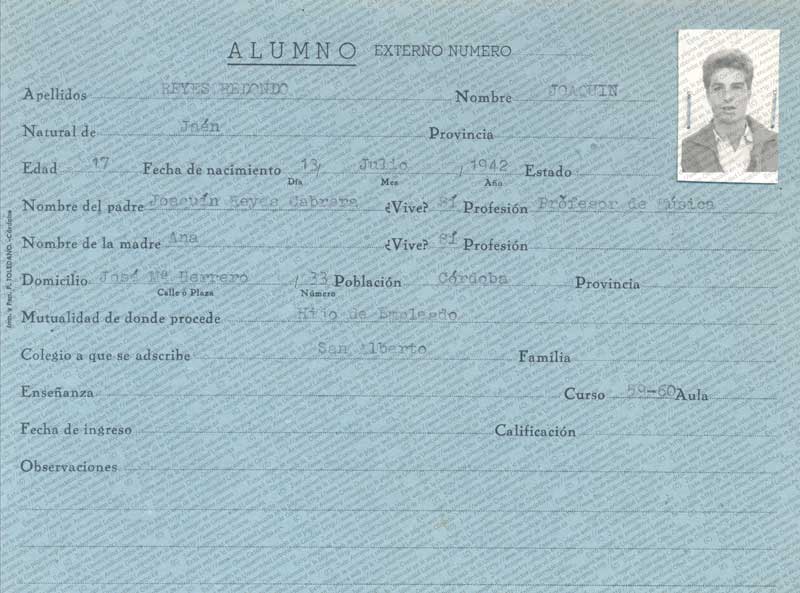 ALUMNO EXTERNO NUMERO
Apellidos REYES REDONDO Nombre JOAQUIN
Natural de Jaén Provincia
Edad 17 Fecha de nacimiento 13/ Julio / 1942 Estado
Día Mes Año
Nombre del padre Joaquín Reyes Cabrera ¿Vive? Sí Profesión Profesor de Música
Nombre de la madre Ana ¿Vive? Sí Profesión
Domicilio José Mª Herrero / 33 Población Córdoba Provincia
Calle ó Plaza Número
Mutualidad de donde procede Hijo de Empleado
Colegio a que se adscribe San Alberto Família
Enseñanza Curso 59-60 Aula
Fecha de ingreso Calificación
Observaciones
Imp. y Pap. F. TOLEDANO.-Córdoba